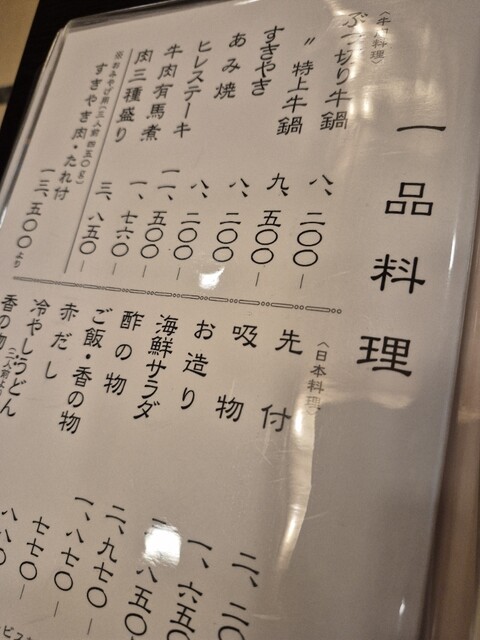 一品料理
〈牛肉料理〉
ぶつ切り牛鍋 八、二〇〇―
〃 特上牛鍋 九、五〇〇―
すきやき 八、二〇〇―
あみ焼 八、二〇〇―
ヒレステーキ 一一、五〇〇―
牛肉有馬煮 一、七六〇―
肉三種盛り 三、八五〇―
※おみやげ用(三人前 四五〇g)
すきやき肉・たれ付 一三、五〇〇より
〈日本料理〉
先付 二、二〇
吸物 一、六五〇
お造り 八五〇
海鮮サラダ 二、九七〇―
酢の物 一、八七〇―
ご飯・香の物 七七〇―
赤だし
冷やしうどん
(二人前より)
香の物